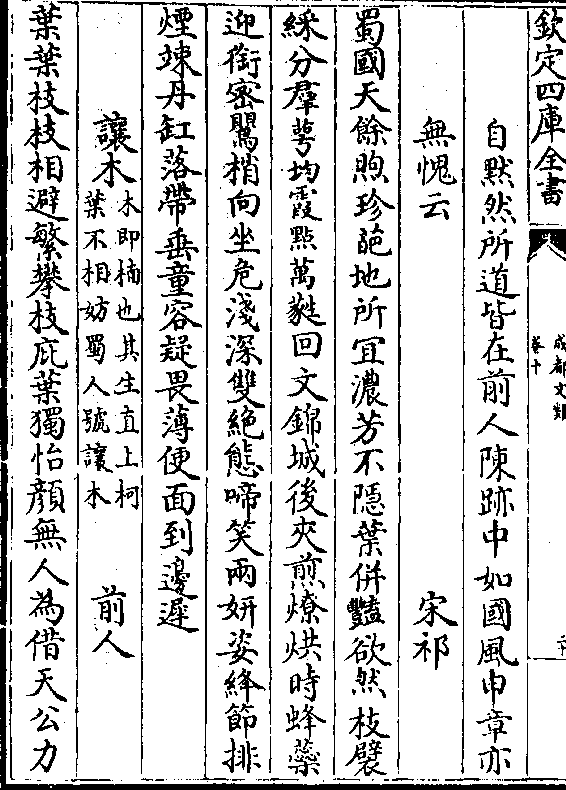 欽定四庫全書
成都文類
卷十
自黙然所道皆在前人陳跡中如國風申章亦
無愧云
宋祁
蜀國天餘煦珍葩地所宜濃芳不隱葉併豔欲然枝襞
綵分羣萼均霞點萬蕤回文錦城後夾煎燎烘時蜂蘂
迎銜密鶯梢向坐危淺深雙絶態啼笑兩妍姿絳節排
煙竦丹缸落帶垂童容疑畏薄便面到邊遲
讓木
木即楠也其生直上柯
葉不相妨蜀人號讓木
前人
葉葉枝枝相避繁攀枝庇葉獨怡顔無人為借天公力